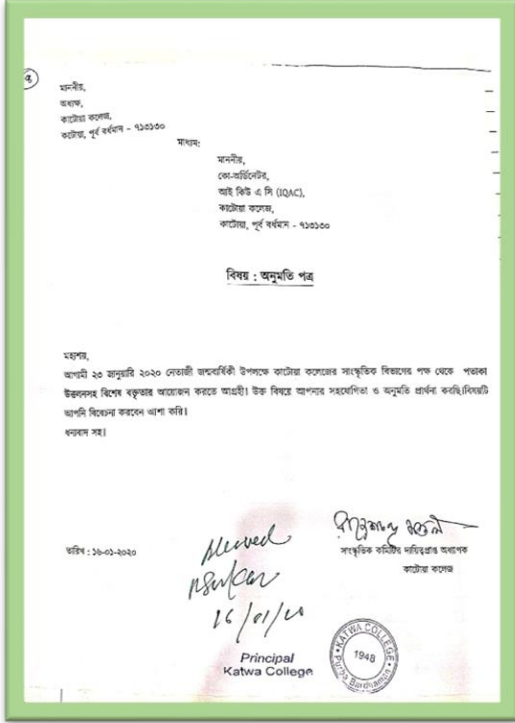 মাননীয়,
অধ্যক্ষ,
কাটোয়া কলেজ,
কাটোয়া, পূর্ব বর্ধমান - ৭১৩১৩০
মাধ্যম:
মাননীয়,
কো-অর্ডিনেটর,
আই কিউ এ সি (IQAC),
কাটোয়া কলেজ,
কাটোয়া, পূর্ব বর্ধমান - ৭১৩১৩০
বিষয় : অনুমতি পত্র
মহাশয়,
আগামী ২৩ জানুয়ারি ২০২০ নেতাজী জন্মবার্ষিকী উপলক্ষে কাটোয়া কলেজের সাংস্কৃতিক বিভাগের পক্ষ থেকে পতাকা
উত্তলনসহ বিশেষ বক্তৃতার আয়োজন করতে আগ্রহী। উক্ত বিষয়ে আপনার সহযোগিতা ও অনুমতি প্রার্থনা করছি।বিষয়টি
আপনি বিবেচনা করবেন আশা করি।
ধন্যবাদ সহ।
তারিখ : ১৬-০১-২০২০
সাংস্কৃতিক কমিটির দায়িত্বপ্রাপ্ত অধ্যাপক
কাটোয়া কলেজ
16/01/20
Principal
Katwa College
KATWA COLLEGE
1948
Purba Bardhaman